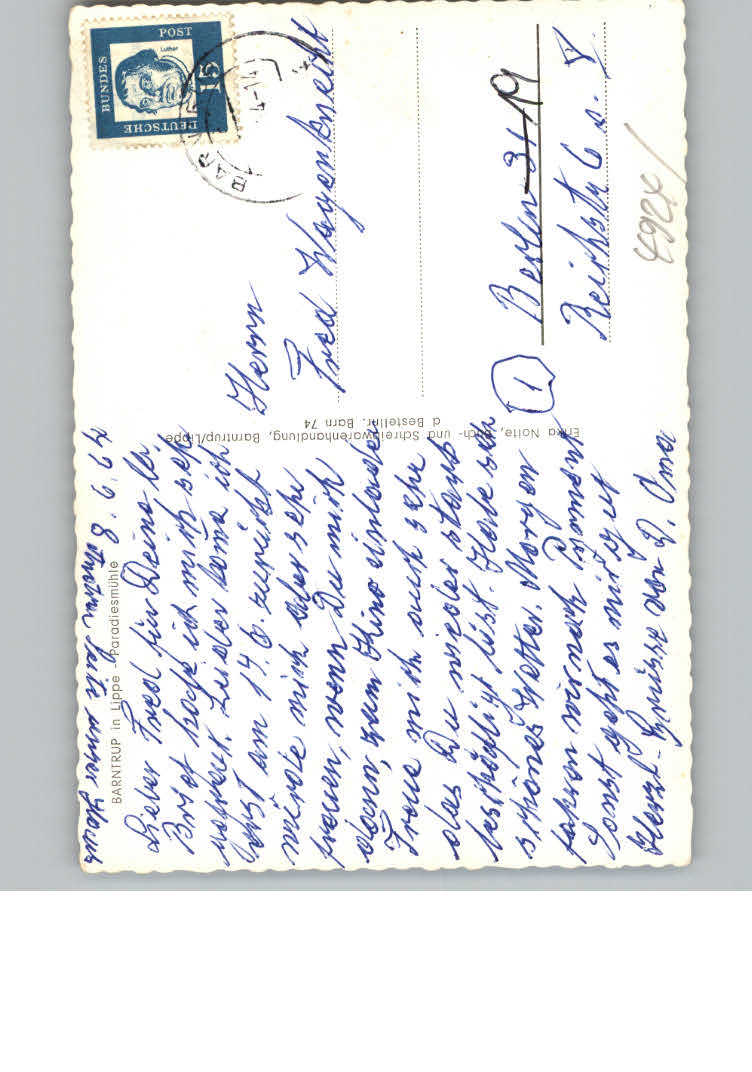 BARNTRUP in Lippe - Paradiesmühle
Lieber Fred für Deine lb.
Brief habe ich mich sehr
gefreut. Leider komme ich
erst am 14. 6. zurück
würde mich aber sehr
freuen, wenn Du mich
dann, zum Kino einladen
Freue mich auch sehr
das Du wieder etwas
beschäftigt bist. Habe sehr
schönes Wetter. Morgen
fahren wir nach Pyrmont
Sonst geht es mir gut
Herzl. Grüsse von D. Oma
unser Haus
Erika Nolte, Buch- und Schreibwarenhandlung, Barntrup/Lippe
d Bestellnr. Barn 74
DEUTSCHE
BUNDES
POST
15
Luther
Herrn
Fred Wagenknecht
1
Berlin 31 19
Reichsstr 6 v. V
4924